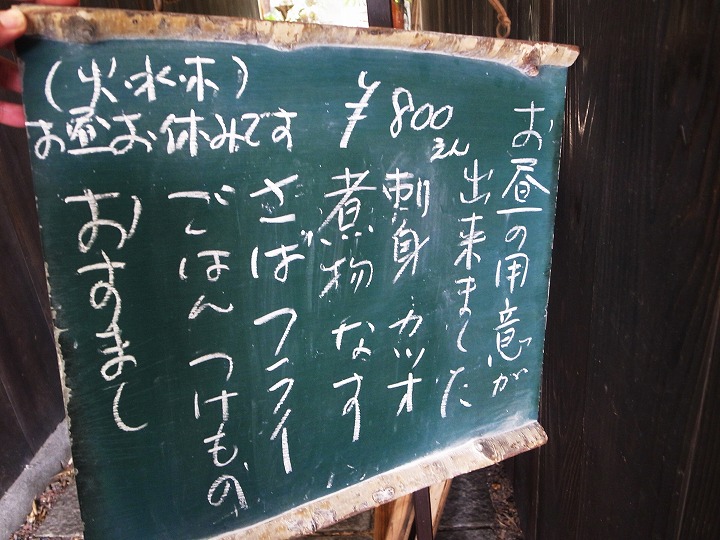 お昼の用意が
出来ました
刺身 カツオ
煮物 なす
さば フライ
ごはん つけもの
おすまし
¥800えん
(火・水・木)
お昼お休みです